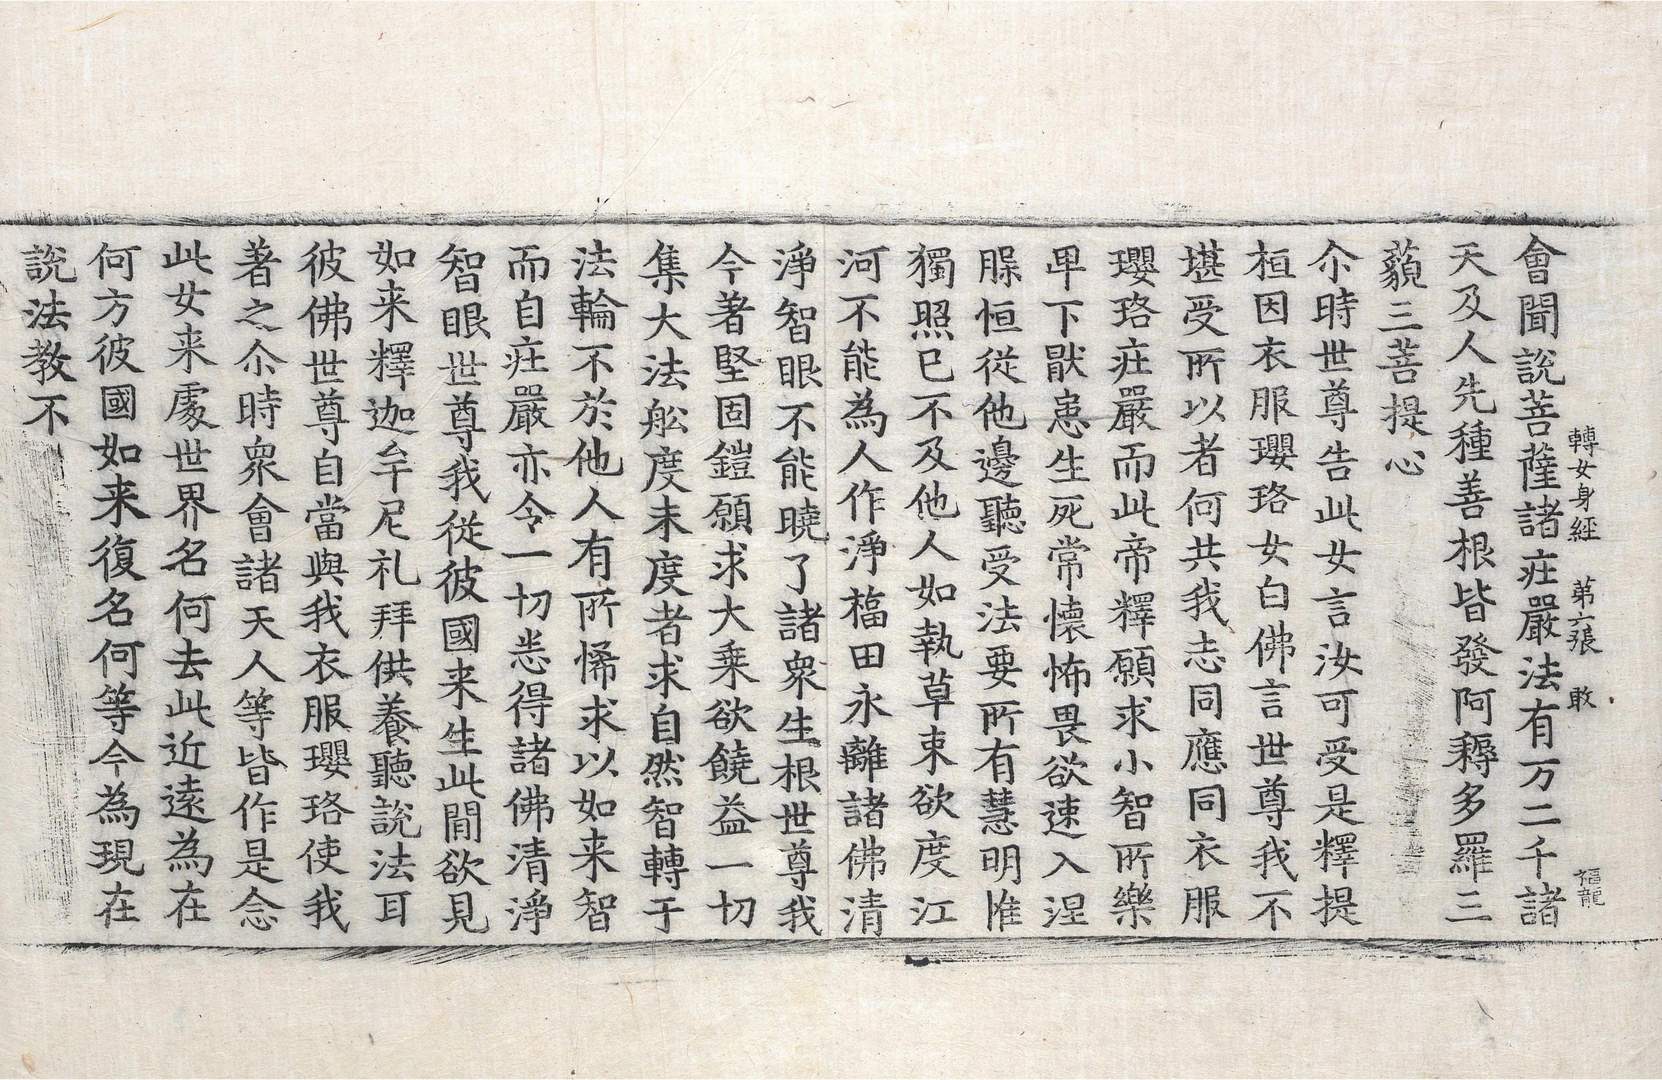 轉女身經 第六張 敢
福龍
會聞說菩薩諸庄嚴法有万二千諸
天及人先種善根皆發阿耨多羅三
藐三菩提心
尒時世尊告此女言汝可受是釋提
桓因衣服瓔珞女白佛言世尊我不
堪受所以者何共我志同應同衣服
瓔珞庄嚴而此帝釋願求小智所樂
卑下猒患生死常懷怖畏欲速入涅
脵恒從他邊聽受法要所有慧明惟
獨照已不及他人如執草束欲度江
河不能為人作淨福田永離諸佛清
淨智眼不能曉了諸衆生根世尊我
今著堅固鎧願求大乗欲饒益一切
集大法舩度未度者求自然智轉于
法輪不於他人有所悕求以如来智
而自庄嚴亦令一切悉得諸佛清淨
智眼世尊我從彼國来生此閒欲見
如来釋迦牟尼礼拜供養聽說法耳
彼佛世尊自當與我衣服瓔珞使我
著之尒時衆會諸天人等皆作是念
此女来處世界名何去此近遠為在
何方彼國如来復名何等今為現在
說法教不